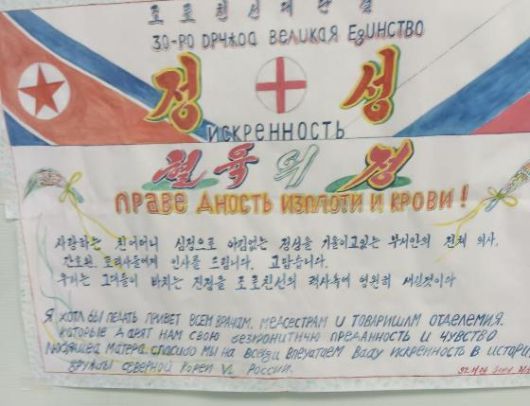 조로친선의 단결
ЗО-РО DРЧЖОА ВЕЛИКАЯ ЕДИНСТВО
정 성
ИСКРЕННОСТЬ
혈육의 정
ПРАВЕ ДНОСТЬ ИЗПЛОТИ И КРОВИ!
사랑하는 친어머니 심정으로 아낌없는 정성을 기울이고있는 부서안의 전체 의사,
간호원, 로력자들에게 인사를 드립니다. 고맙습니다.
우리는 그대들이 바치는 진정을 조로친선의 력사속에 영원히 새길것이다
Я ХОТЛ БЫ ПЕЛАТЬ ПРИВЕТ ВСЕМ ВРАЧАМ, МЕДСЕСТРАМ И ТОВАРИЩАМ ОТДЕЛЕМИЯ.
КОТОРЫЕ ДАЯТ НАМ СВОЮ БЕЗГРОНИТИЧНЮ ПРЕДАННОСТЬ И ЧУВСТВО
ЛЮБЯЩЕЙ МАТЕРА. СПАСИБО МЫ НА ВСЕГДА ВПЕЧАТАЕМ ВАШУ ИСКРЕННОСТЬ В ИСТОРИ
ДРУЖБЫ СЕВЕРНОЙ КОРЕИ И РОССИИ.